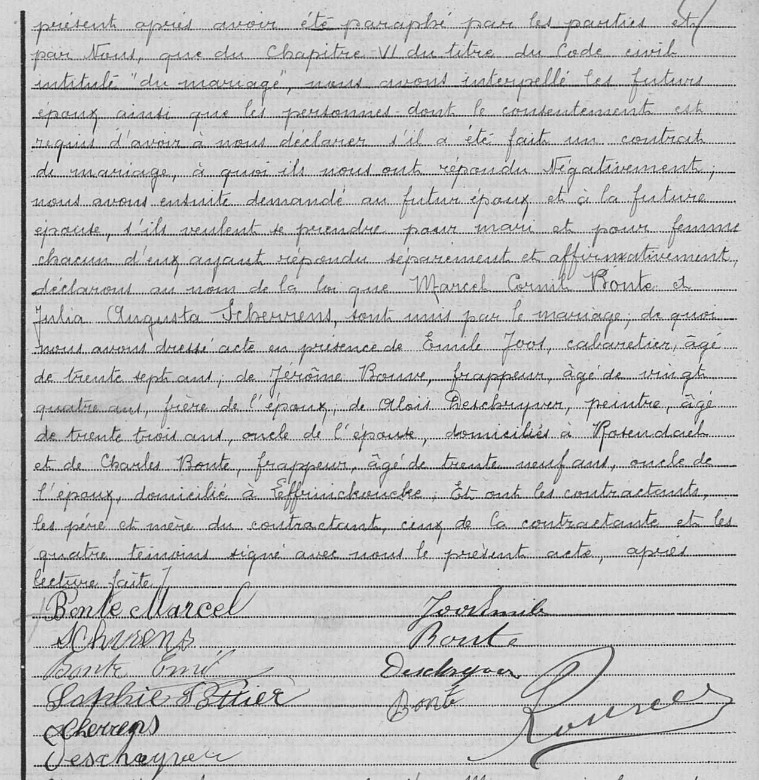 présent après avoir été paraphé par les parties et
par Nous, que du Chapitre VI du titre du Code civil
intitulé "du mariage", nous avons interpellé les futurs
époux ainsi que les personnes dont le consentement est
requis d'avoir à nous déclarer s'il a été fait un contrat
de mariage, à quoi ils nous ont répondu Négativement ;
nous avons ensuite demandé au futur époux et à la future
épouse, s'ils veulent se prendre pour mari et pour femme
chacun d'eux ayant répondu séparement et affirmativement,
déclarons au nom de la loi que Marcel Cornil Bonte et
Julia Augusta Scherrens, sont unis par le mariage, de quoi
nous avons dressé acte en présence de Emile Joos, cabaretier, âgé
de trente sept ans, de Jérôme Bonve, frappeur, âgé de vingt
quatre ans, frère de l'époux, de Aloïs Deschryver, peintre, âgé
de trente trois ans, oncle de l'épouse, domiciliés à Rosendael
et de Charles Bonte, frappeur, âgé de trente neuf ans, oncle de
l'époux, domicilié à Leffrinckoucke ; Et ont les contractants,
les père et mère du contractant, ceux de la contractante et les
quatre témoins signé avec nous le présent acte, après
lecture faite
Bonte Marcel Joos Emile
Scherrens Bonte
Bonte Deschryver
Sophie Bonte
Scherrens
Deschryver